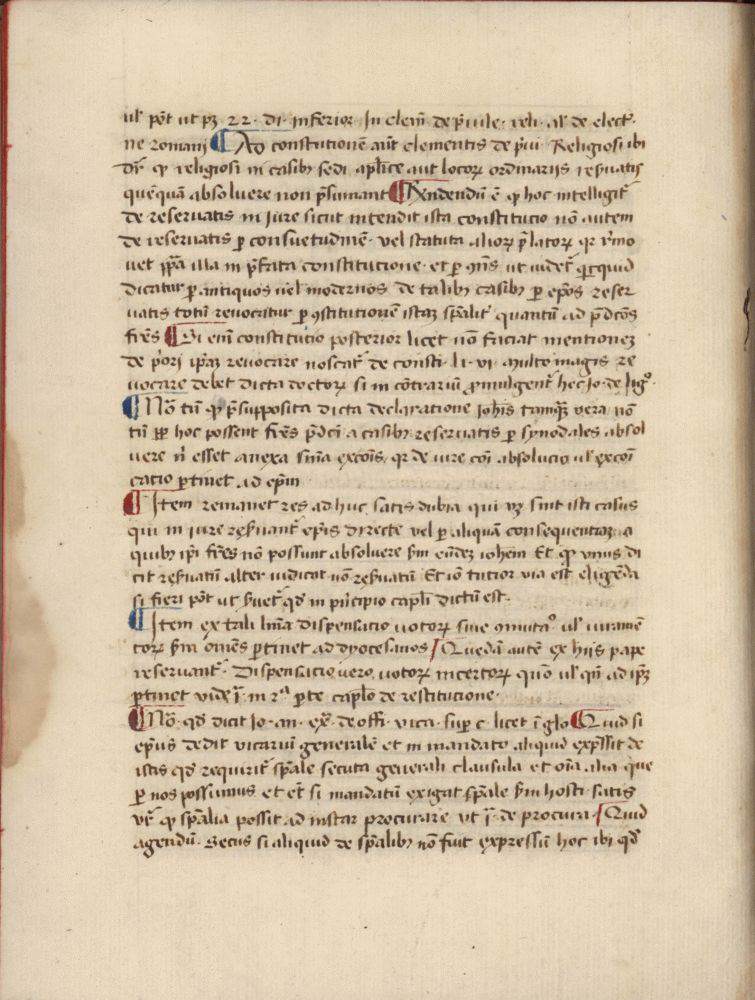 ul' pōt ut pȝ 22. di. inferior. In clem̄. de p̄uile. reli. al' de elect.
ne romani ¶ Ad constitutionē aūt clementis de p̄ui. Religiosi ibi
dr̄ q̄ religiosi in casibȝ sedi ap̄lice aut locoꝝ ordinarijs reẜuatis
quēquā absoluere non p̄sumant ¶ Attendendū ē q̄ hoc intelligit᷑
de reseruatis in iure sicut intendit ista constitucio nō autem
de reseruatis ꝑ consuetudinē. vel statuta alioꝝ p̄latoꝝ qr
dicatur ꝑ antiquos uel modernos de talibȝ casibȝ ꝑ ep̄os reser
uatis totū reuocatur ꝑ ꝯstitutionē istaȝ sp̄alit᷑ quantū ad p̄dcōs
fr̄es ¶ Si enī constitutio posterior licet nō faciat mentioneȝ
de p̄ori ip̄aȝ reuocare noscat᷑ de consti. li. vi. multo magis re
uocare debet dicta doctoꝝ si in cōtrariū ꝓmulgent᷑ hec Jo. de lig̊.
¶ Nō tn̄ q̄ p̄supposita dicta declaratione ioh̄is tamq̄ȝ vera nō
tn̄ ꝓpt̄ hoc possent fr̄es p̄dc̄i a casibȝ reseruatis ꝑ synodales absol
uere n̄ esset anexa sn̄ia excōis, qr de iure cōi absolucio ul' excōi
catio ꝑtinet ad ep̄m
¶ Item remanet res ad huc satis dubia qui vȝ sint isti casus
qui in iure reẜuant᷑ ep̄is directe vel ꝑ aliquā consequentiaȝ a
quibȝ ip̄i fr̄es nō possunt absoluere ẜm eundeȝ iohem Et q̄ vnus di
cit reẜuatū alter iudicat nō reẜuatū Et iō tucior via est eligēda
si fieri pōt ut ẜuet᷑ qd̄ in principio capl̄i dictū est.
¶ Item ex tali lnīa dispensacio uotoꝝ siue ꝯmutac̊ ul' iuramē
toꝝ ẜm omēs ꝑtinet ad dyocesanos / Quedā autē ex hijs pape
reseruant᷑. Dispensacio vero uotoꝝ incertoꝝ quō ul' qn̄ ad ip̄ȝ
ꝑtinet vide ī. in 2ᵃ ꝑte cap̄lo de restitucione.
¶ Nō. qd̄ dicit Jo. an. ex. de offi. vica. suꝑ c. licet ī glo. ¶ Quid si
ep̄us dedit vicariū generalē et in mandato aliquid exp̄ssit de
istis qd̄ requirit᷑ sp̄ale secuta generali clausula et oīa alia que
ꝑ nos possumus et et̄ si mandatū exigat sp̄ale ẜm hosti. satis
vr̄ q̄ sp̄alia possit ad instar procurare vt ī. de procura. / Quid
agendū. Secus si aliquid de sp̄alibȝ nō fuit expressū hoc ibi qd̄